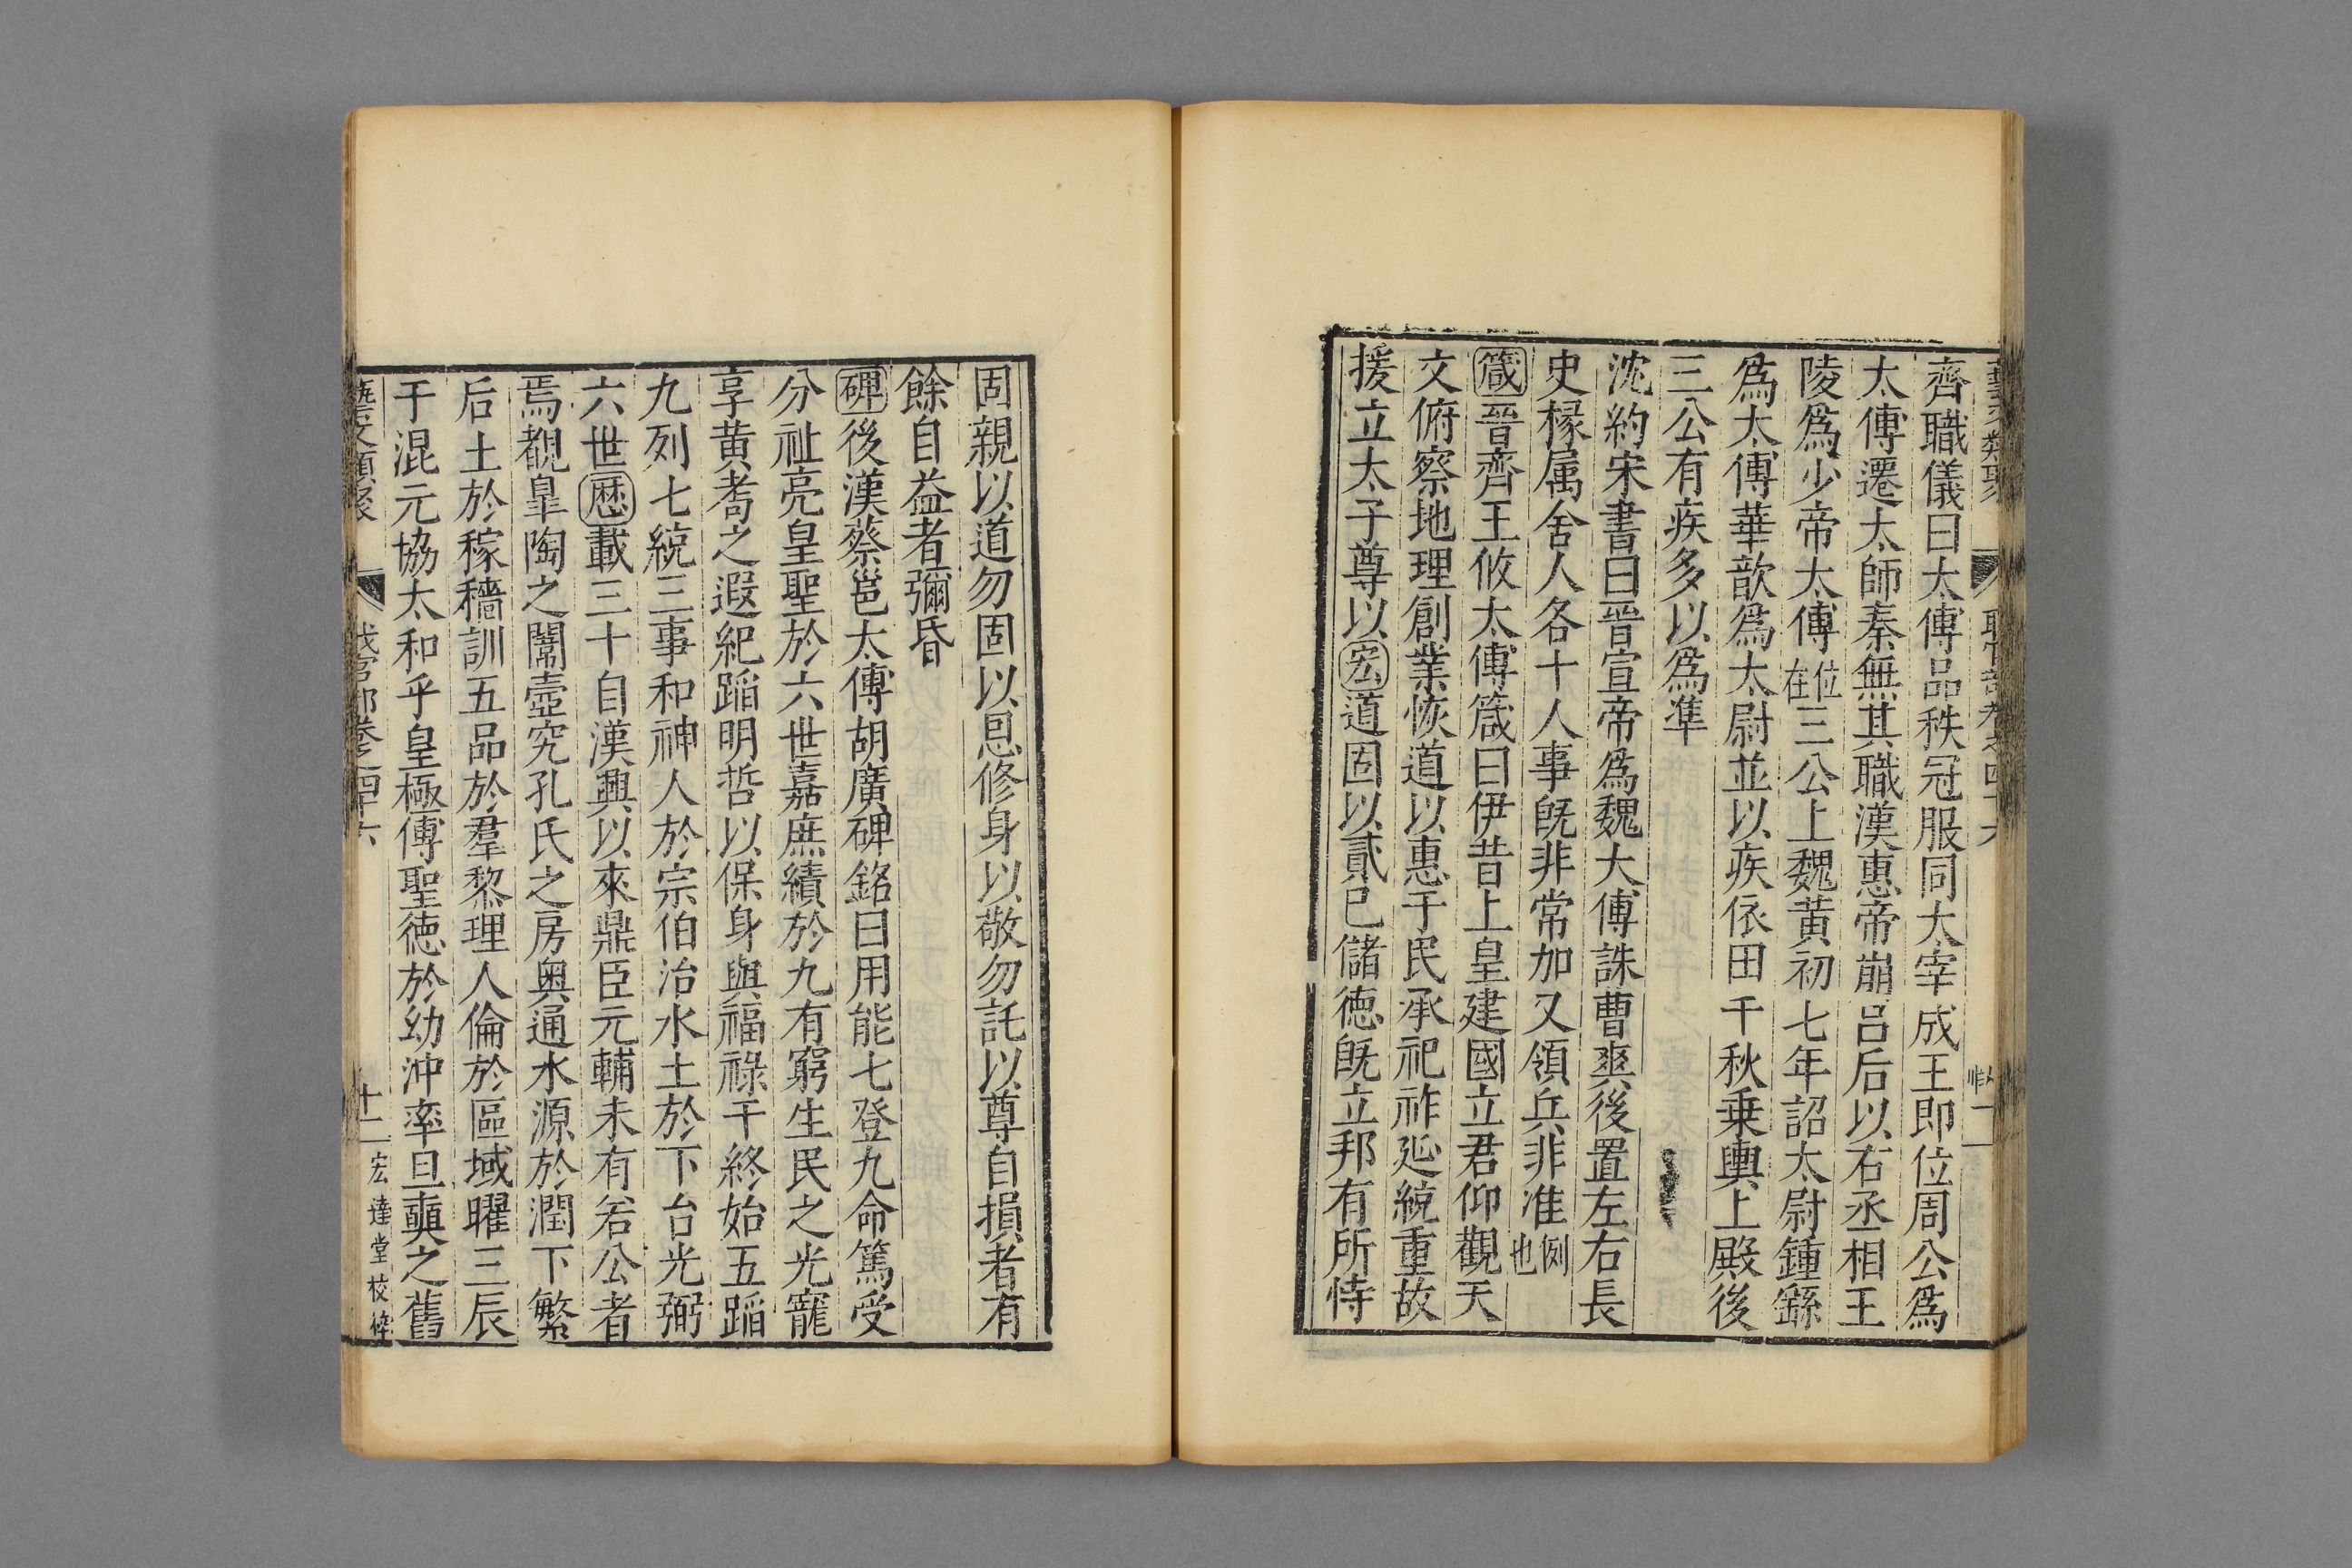 齊職儀曰太傅品秩冠服同太宰成王即位周公爲
太傅遷太師秦無其職漢惠帝崩呂后以右丞相王
陵爲少帝太傅在位三公上魏黃初七年詔太尉鍾繇
爲太傅華歆爲太尉並以疾依田千秋乗輿上殿後
三公有疾多以爲準
沈約宋書曰晉宣帝爲魏大傅誅曹爽後置左右長
史椽属舍人各十人事旣非常加又領兵非准例也
箴晉齊王攸太傅箴曰伊昔上皇建國立君仰觀天
文俯察地理創業恢道以惠于民承祀祚延統重故
援立太子尊以宏道固以貳已儲徳旣立邦有所恃
固親以道勿固以恩修身以敬勿託以尊自損者有
餘自益者彌昏
碑後漢蔡邕太傅胡廣碑銘曰用能七登九命篤受
分祉亮皇聖於六世嘉庶績於九有窮生民之光寵
享黄耇之遐紀蹈明哲以保身與福祿干終始五蹈
九列七統三事和神人於宗伯治水土於下台光弼
六世厯載三十自漢興以來鼎臣元輔未有若公者
焉覩臯陶之闈壼究孔氏之房奥通水源於潤下繁
后土於稼穡訓五品於羣黎理人倫於區域曜三辰
于混元協太和乎皇極傅聖徳於幼沖率旦奭之舊
藝文類聚 職官部卷之四十六 十二 宏達堂校梓